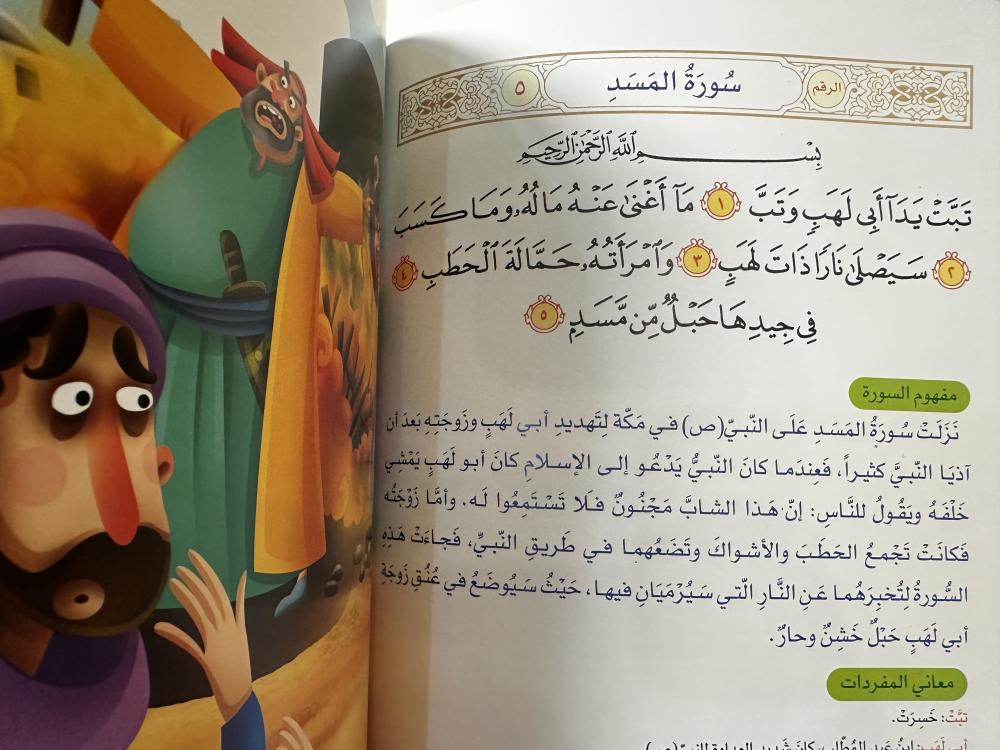 الرقم سُورَةُ المَسَدِ ٥
بِسْمِ ٱللَّهِ ٱلرَّحْمَٰنِ ٱلرَّحِيمِ
تَبَّتْ يَدَآ أَبِي لَهَبٍ وَتَبَّ ١ مَآ أَغْنَىٰ عَنْهُ مَالُهُۥ وَمَا كَسَبَ
٢ سَيَصْلَىٰ نَارًا ذَاتَ لَهَبٍ ٣ وَٱمْرَأَتُهُۥ حَمَّالَةَ ٱلْحَطَبِ ٤
فِي جِيدِهَا حَبْلٌ مِّن مَّسَدٍ ٥
مفهوم السورة
نَزَلَتْ سُورَةُ المَسَدِ عَلَى النَّبيّ(ص) في مَكّة لِتَهديدِ أبي لَهَبٍ وزَوجَتِهِ بَعدَ أن
آذيَا النّبيَّ كثيراً، فَعِندَما كانَ النّبيُّ يَدْعُو إلى الإسلامِ كانَ أبو لَهَبٍ يَمْشِي
خَلْفَهُ ويَقُولُ للنَّاسِ: إنّ هَذا الشابَّ مَجْنُونٌ فَلا تَسْتَمِعُوا لَه. وأمَّا زَوْجَتُه
فكانَتْ تَجْمعُ الحَطَبَ والأشواكَ وتَضَعُهما في طَريقِ النّبيِّ، فَجاءَتْ هَذِهِ
السُّورةُ لِتُخبِرَهُما عَنِ النَّارِ الّتي سَيُرْمَيَانِ فيها، حَيْثُ سَيُوضَعُ في عُنُقِ زَوجَةِ
أبي لَهَبٍ حَبْلٌ خَشِنٌ وحارٌ.
معاني المفردات
تبَّتْ: خَسِرَتْ.
أبي لَهَب: ابنُ عَبدِ المُطَّلِب، كانَ شَديدَ العداوةِ للنبيّ(ص).